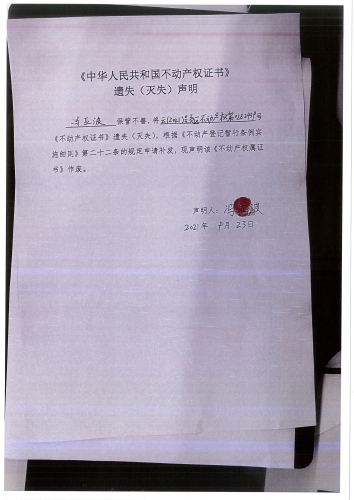 《中华人民共和国不动产权证书》
遗失（灭失）声明
冯亚波 保管不善，将 不动产权第 号
《不动产权证书》遗失（灭失），根据《不动产登记暂行条例实
施细则》第二十二条的规定申请补发，现声明该《不动产权属证
书》作废。
声明人：冯
2021年 9月 23日